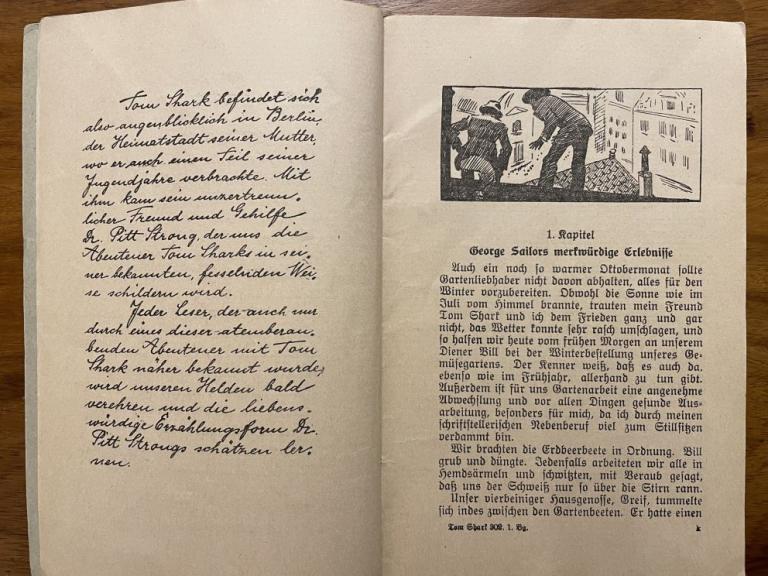 Tom Shark befindet sich
also augenblicklich in Berlin,
der Heimatstadt seiner Mutter,
wo er auch einen Teil seiner
Jugendjahre verbrachte. Mit
ihm kam sein unzertrenn-
licher Freund und Gehilfe
Dr. Pitt Strong, der uns die
Abenteuer Tom Sharks in sei-
ner bekannten, fesselnden Wei-
se schildern wird.
Jeder Leser, der auch nur
durch eines dieser atemberau-
benden Abenteuer mit Tom
Shark näher bekannt wurde,
wird unseren Helden bald
verehren und die liebens-
würdige Erzählungsform Dr.
Pitt Strongs schätzen ler-
nen.
1. Kapitel
George Sailors merkwürdige Erlebnisse
Auch ein noch so warmer Oktobermonat sollte
Gartenliebhaber nicht davon abhalten, alles für den
Winter vorzubereiten. Obwohl die Sonne wie im
Juli vom Himmel brannte, trauten mein Freund
Tom Shark und ich dem Frieden ganz und gar
nicht, das Wetter konnte sehr rasch umschlagen, und
so halfen wir heute vom frühen Morgen an unserem
Diener Bill bei der Winterbestellung unseres Ge-
müsegartens. Der Kenner weiß, daß es auch da,
ebenso wie im Frühjahr, allerhand zu tun gibt.
Außerdem ist für uns Gartenarbeit eine angenehme
Abwechslung und vor allen Dingen gesunde Aus-
arbeitung, besonders für mich, da ich durch meinen
schriftstellerischen Nebenberuf viel zum Stillsitzen
verdammt bin.
Wir brachten die Erdbeerbeete in Ordnung. Bill
grub und düngte. Jedenfalls arbeiteten wir alle in
Hemdsärmeln und schwitzten, mit Verlaub gesagt,
daß uns der Schweiß nur so über die Stirn rann.
Unser vierbeiniger Hausgenosse, Greif, tummelte
sich indes zwischen den Gartenbeeten. Er hatte einen
Tom Shark 302. 1. Bg.